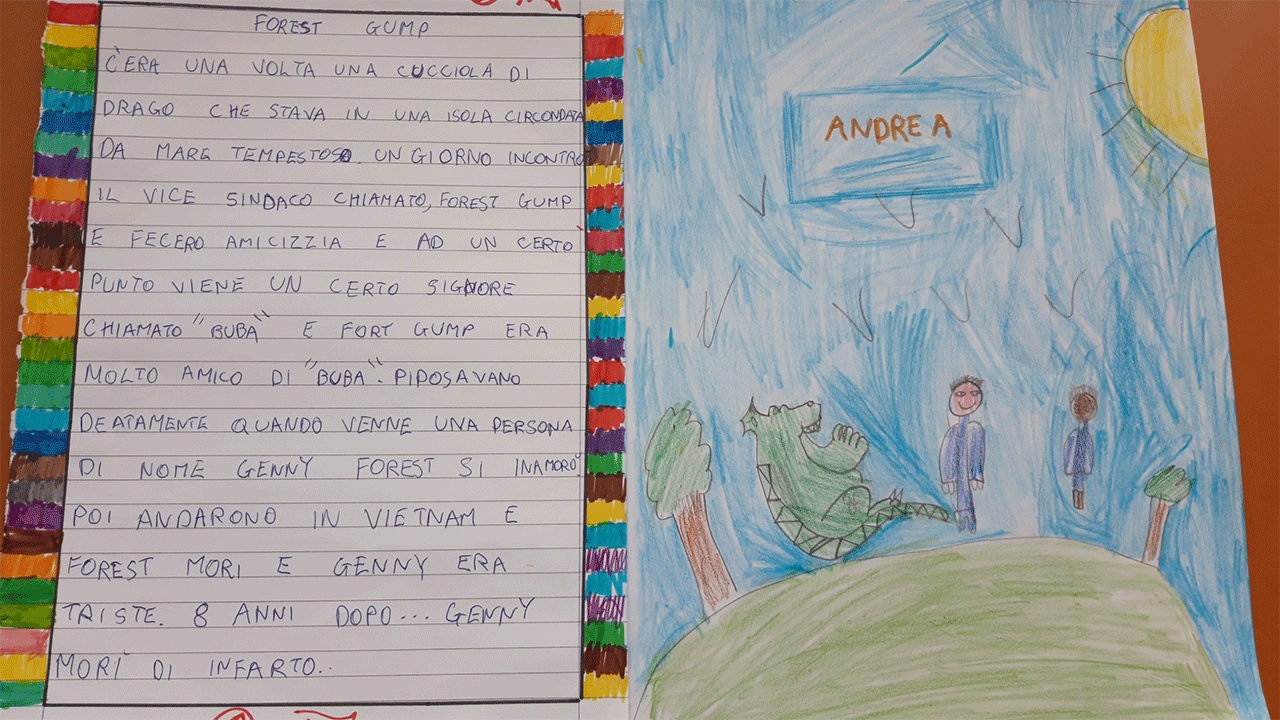 FOREST GUMP
C'ERA UNA VOLTA UNA CUCCIOLA DI
DRAGO CHE STAVA IN UNA ISOLA CIRCONDATA
DA MARE TEMPESTOSO. UN GIORNO INCONTRO
IL VICE SINDACO CHIAMATO, FOREST GUMP
E FECERO AMICIZZIA E AD UN CERTO
PUNTO VIENE UN CERTO SIGNORE
CHIAMATO "BUBA" E FORT GUMP ERA
MOLTO AMICO DI "BUBA". PIPOSAVANO
DEATAMENTE QUANDO VENNE UNA PERSONA
DI NOME GENNY FOREST SI INAMORÒ.
POI ANDARONO IN VIETNAM E
FOREST MORI E GENNY ERA
TRISTE. 8 ANNI DOPO... GENNY
MORI' DI INFARTO..
ANDREA